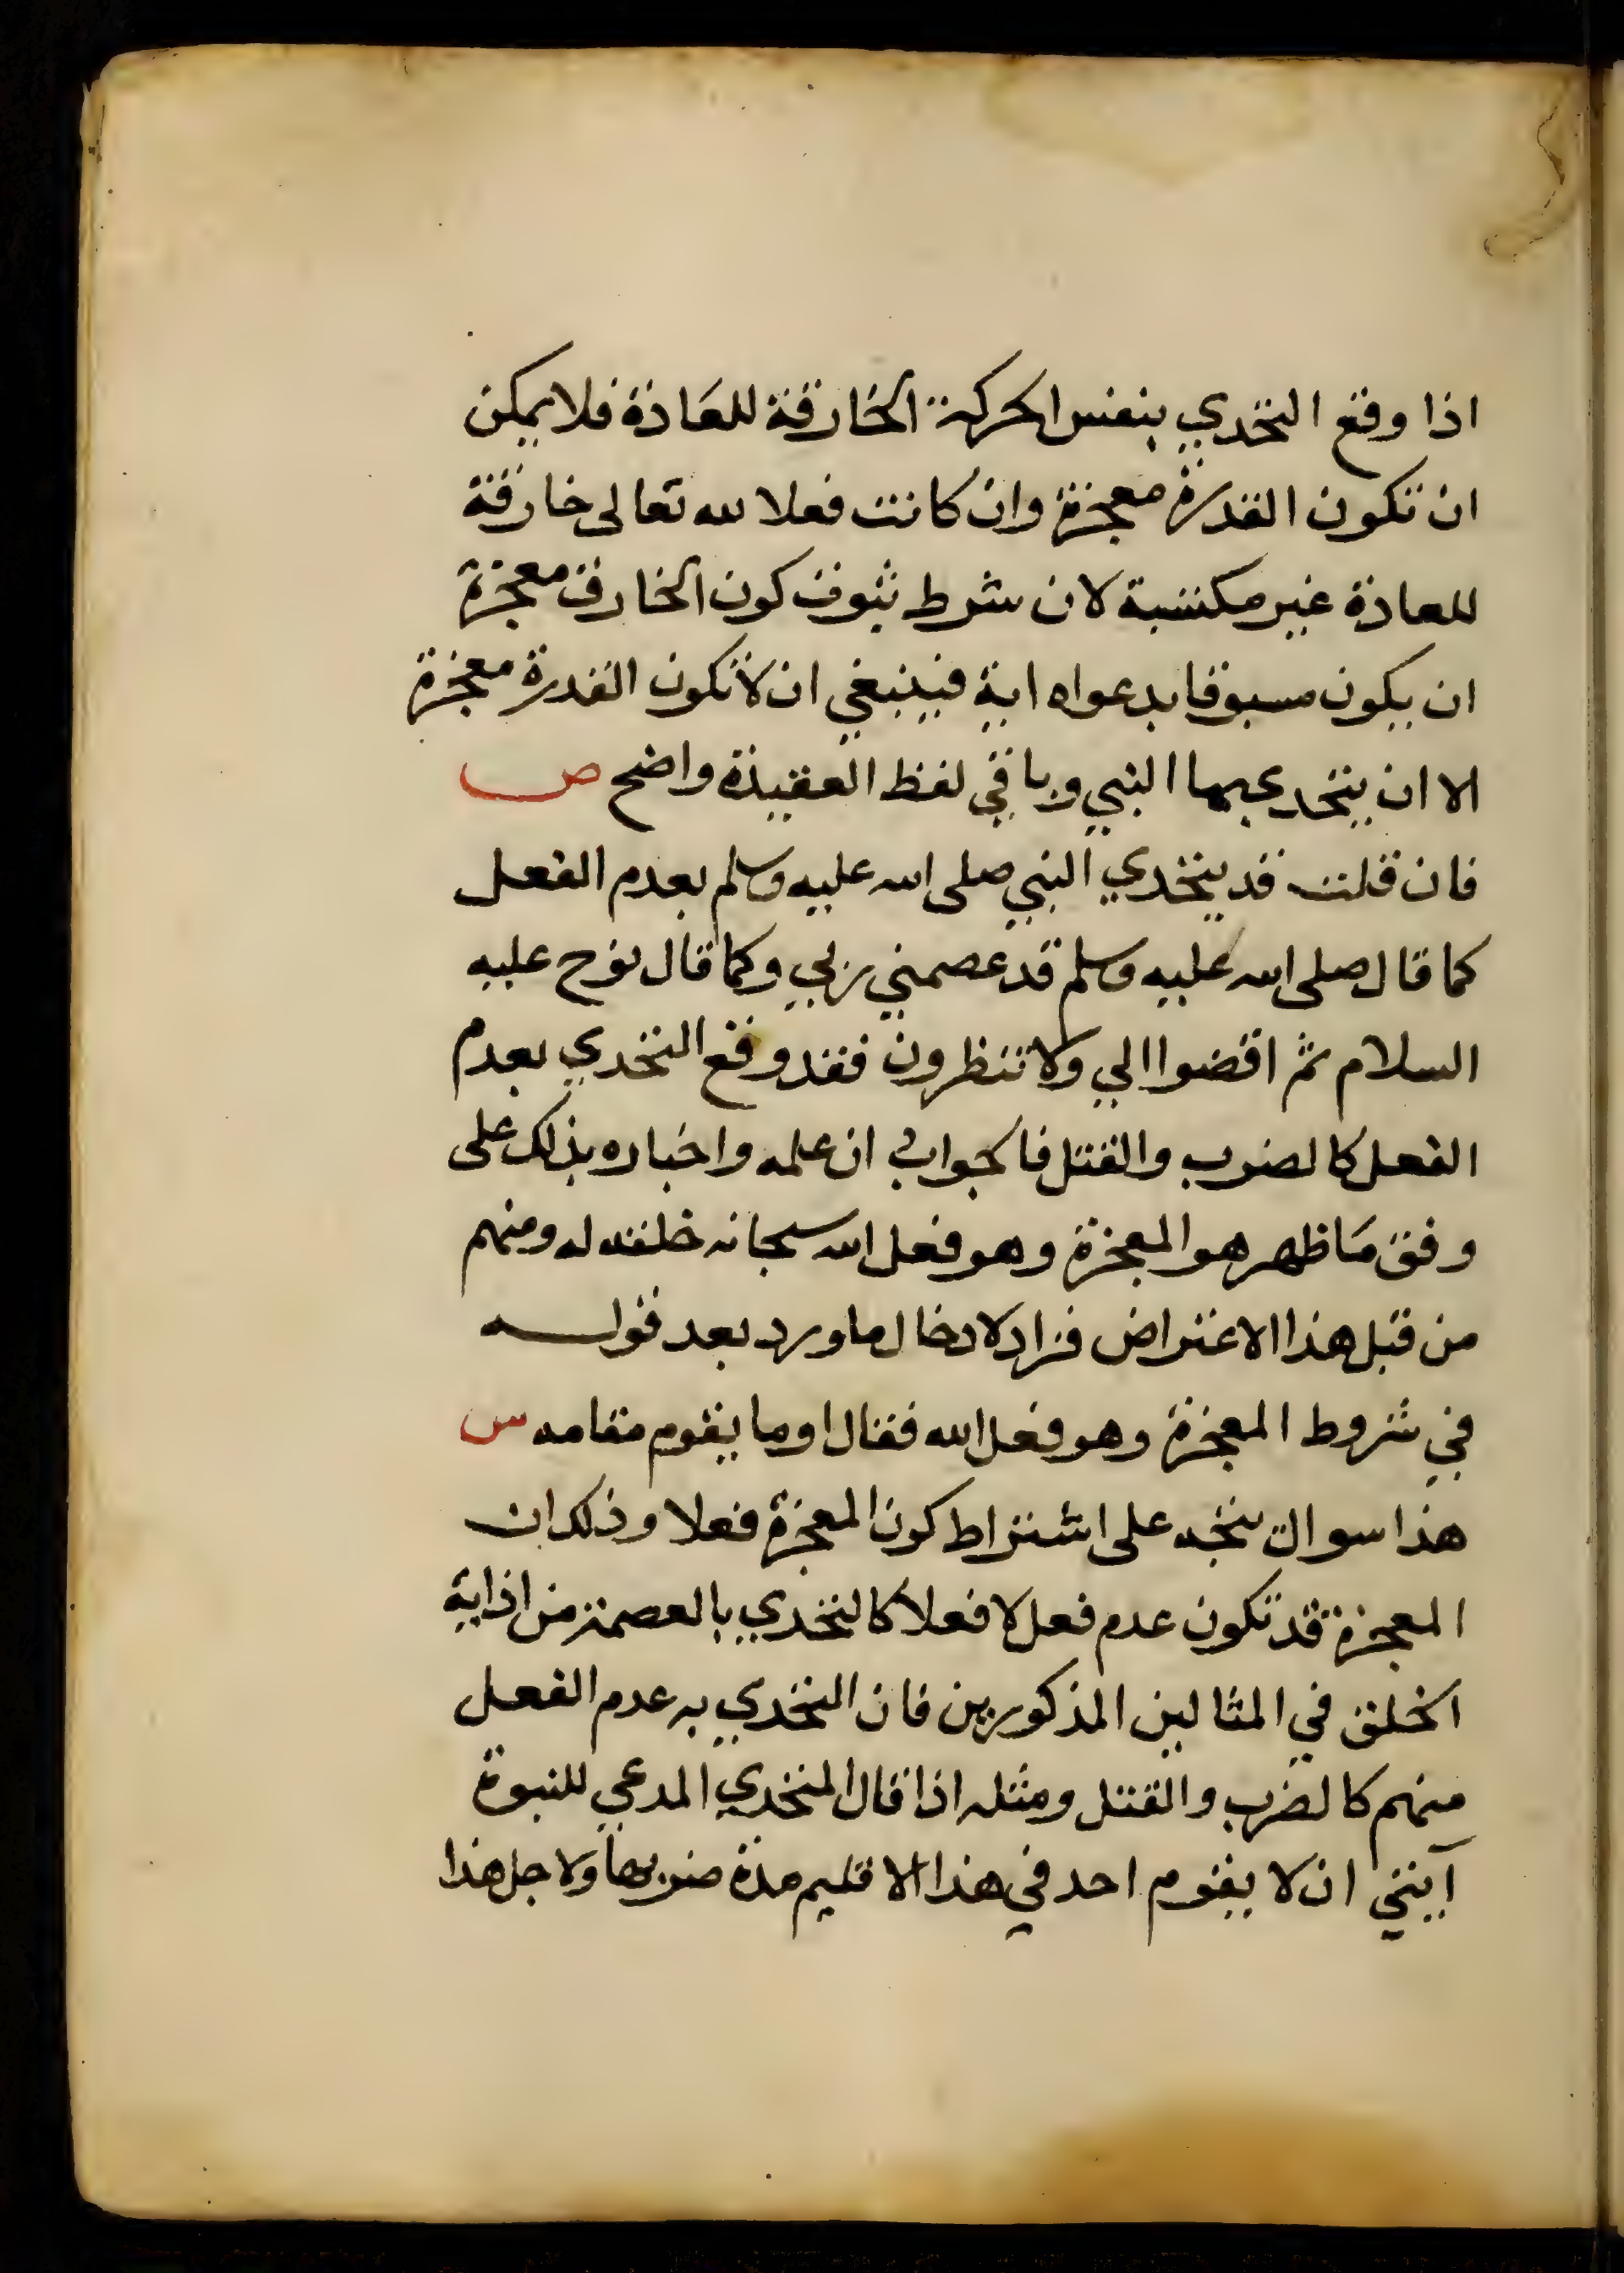 اذا وقع التحدي بنفس الحركة الخارقة للعادة فلا يمكن
ان تكون القدرة معجزة وان كانت فعلا لله تعالى خارقة
للعادة غير مكتسبة لان شرط ثبوت كون الخارق معجزة
ان يكون مسبوقا بدعواه اية فينبغي ان لا تكون القدرة معجزة
الا ان يتحدى بها النبي وباقي لفظ العقيدة واضح ص
فان قلت قد يتحدي النبي صلى الله عليه وسلم بعدم الفعل
كما قال صلى الله عليه وسلم قد عصمني ربي وكما قال نوح عليه
السلام ثم اقضوا الي ولا تنظرون فقد وقع التحدي بعدم
الفعل كالضرب والقتل فالجواب ان علمه واخباره بذلك على
وفق ما ظهر هو المعجزة وهو فعل الله سبحانه خلقه له ومنهم
من قبل هذا الاعتراض فزاد لادخال ما ورد بعد قوله
في شروط المعجزة وهو فعل الله فقال او ما يقوم مقامه س
هذا سوال يتجه على اشتراط كون المعجزة فعلا وذلك ان
المعجزة قد تكون عدم فعل لا فعلا كالتحدي بالعصمة من اذاية
الخلق في المثالين المذكورين فان التحدي به عدم الفعل
منهم كالضرب والقتل ومثله اذا قال المتحدي المدعي للنبوة
آيتي ان لا يقوم احد في هذا الاقليم مدة ضربها ولاجل هذا